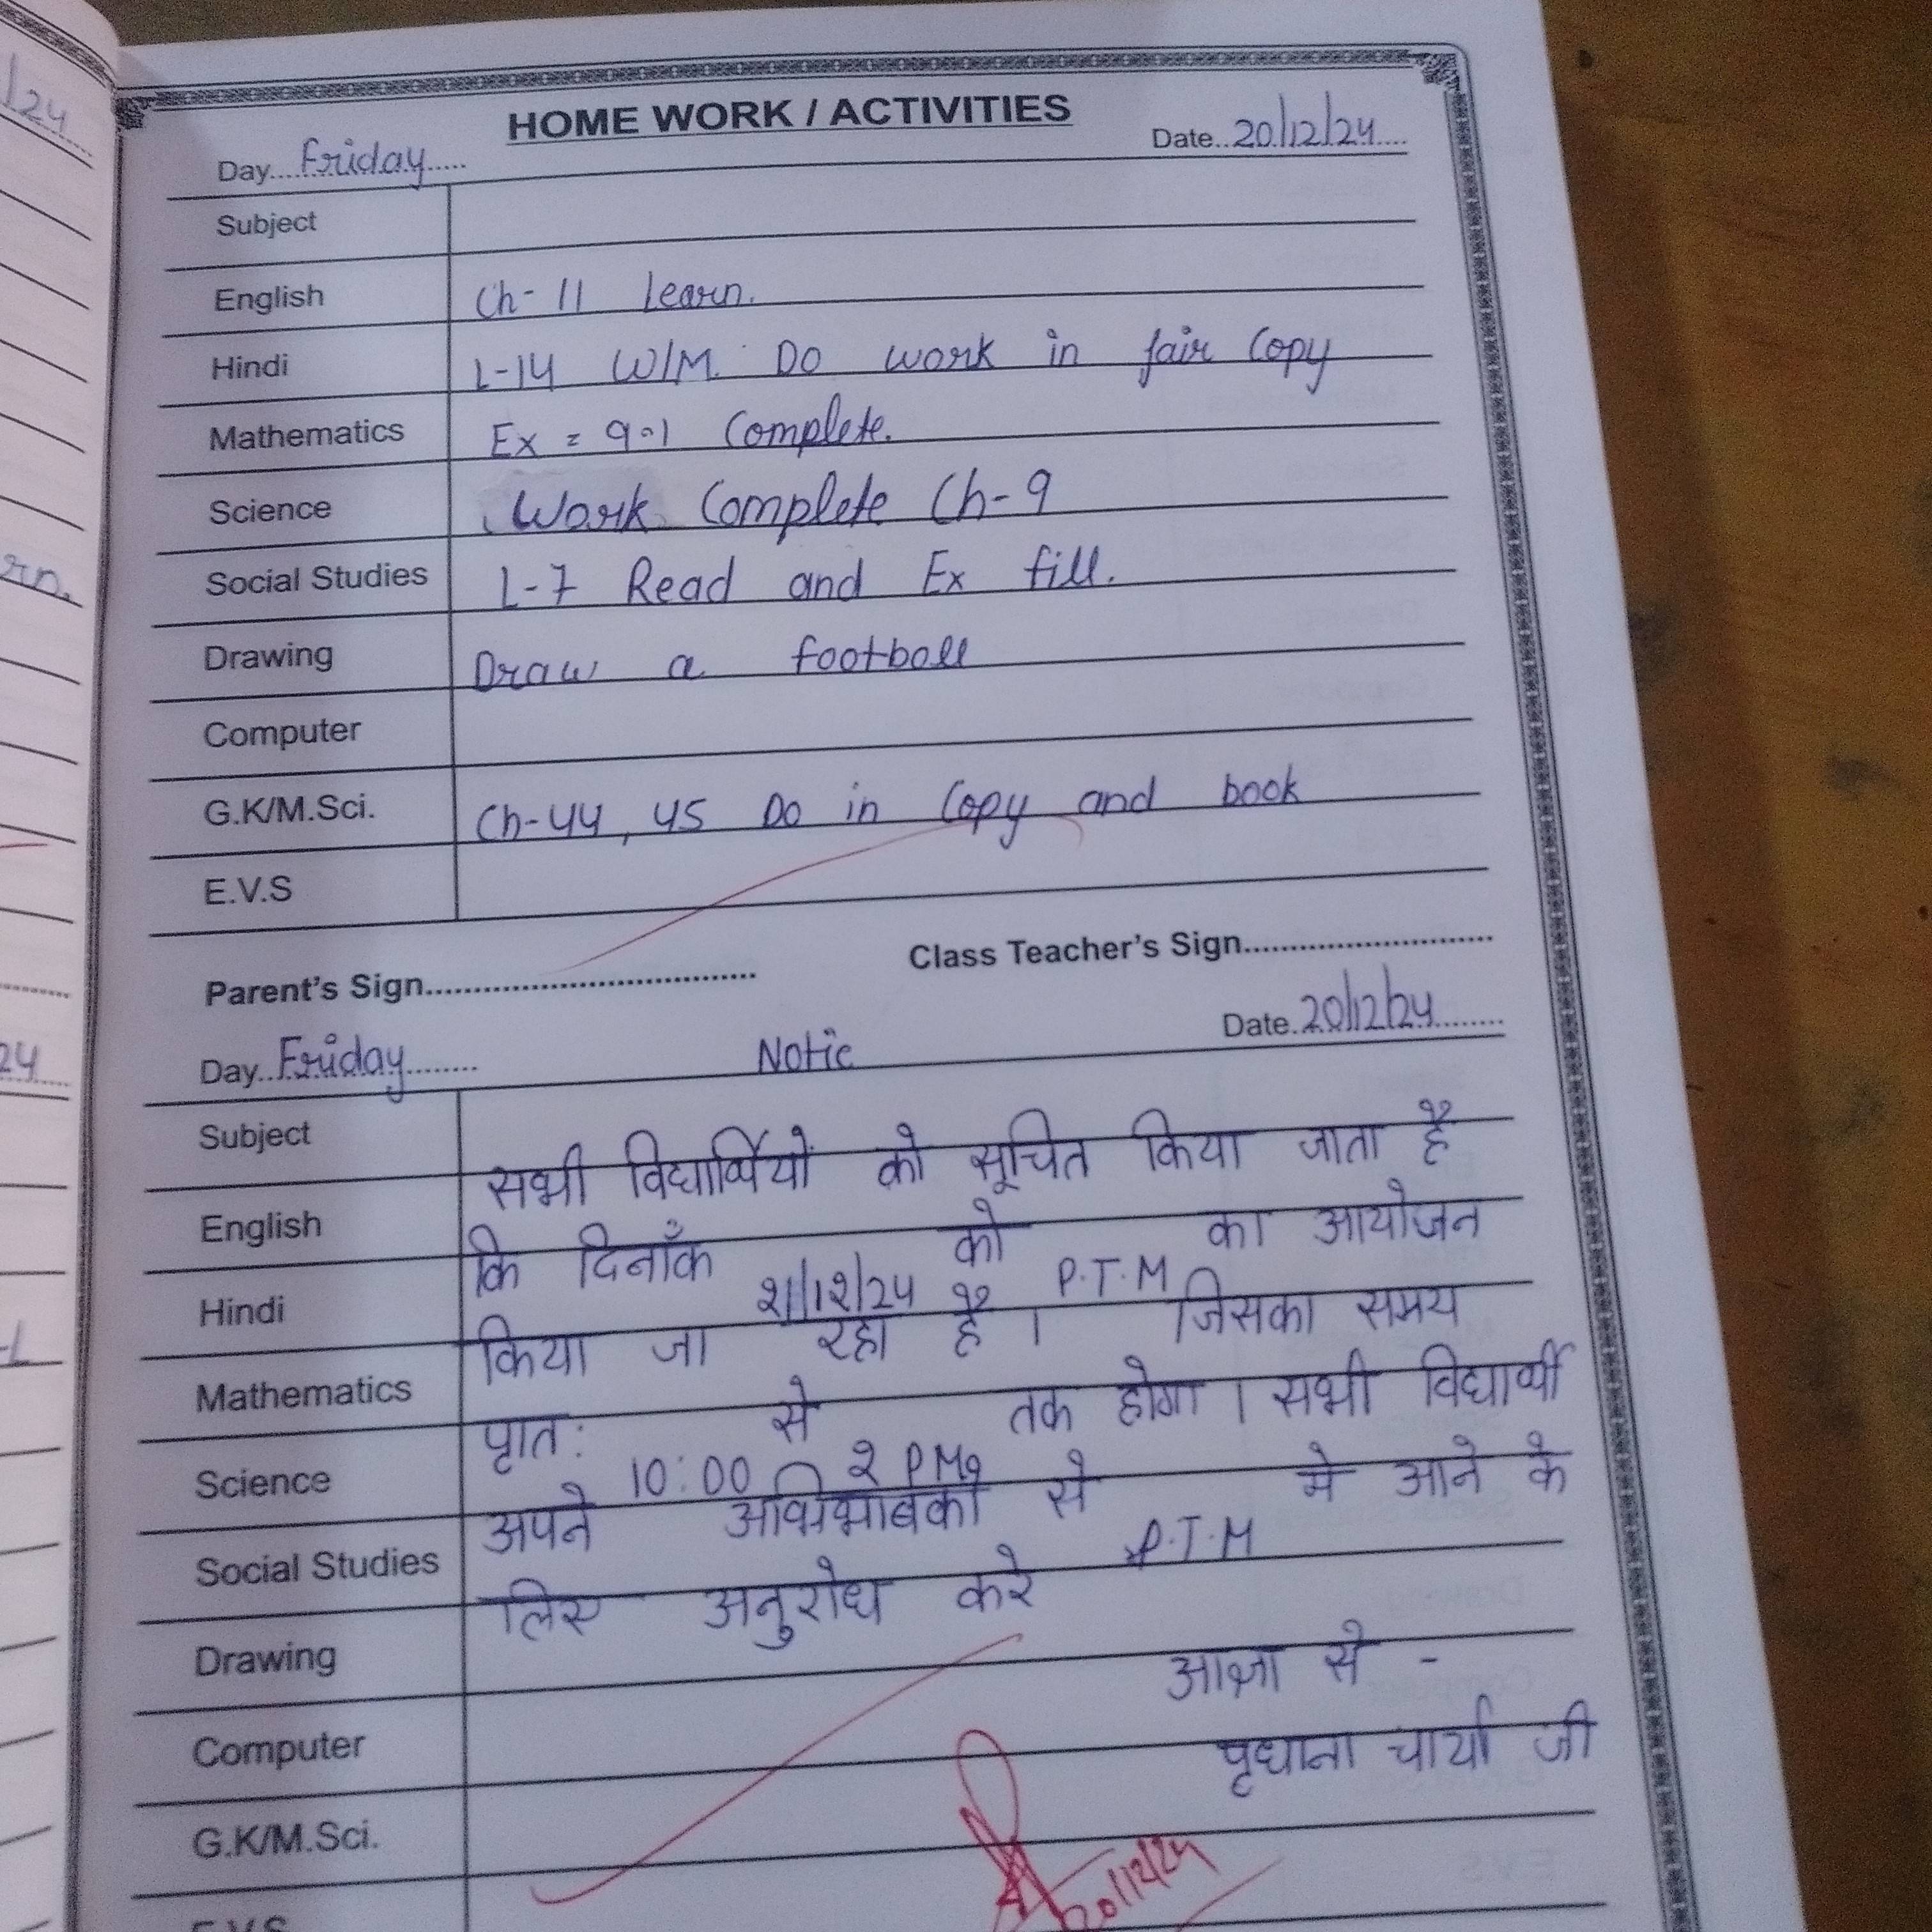 HOME WORK / ACTIVITIES
Day.... Friday..... Date.. 20/12/24....
Subject
English Ch-11 Learn.
Hindi L-14 W/M. Do work in fair Copy
Mathematics Ex = 9.1 Complete.
Science Work Complete Ch-9
Social Studies L-7 Read and Ex fill.
Drawing Draw a football
Computer
G.K/M.Sci. Ch-44, 45 Do in Copy and book
E.V.S
Parent's Sign.................................... Class Teacher's Sign....................................
Day.. Friday........ Notic Date. 20/12/24........
Subject
सभी विद्यार्थियों को सूचित किया जाता है
English
कि दिनाँक 21/12/24 को P.T.M का आयोजन
Hindi
किया जा रहा है । जिसका समय
Mathematics
प्रात: 10:00 से 2 PM तक होगा । सभी विद्यार्थी
Science
अपने अभिभाबकों से P.T.M मे आने के
Social Studies
लिए अनुरोध करे
Drawing
आज्ञा से -
Computer
प्रधाना चार्या जी
G.K/M.Sci.
20/12/24
E.V.S
/24
rn.
24